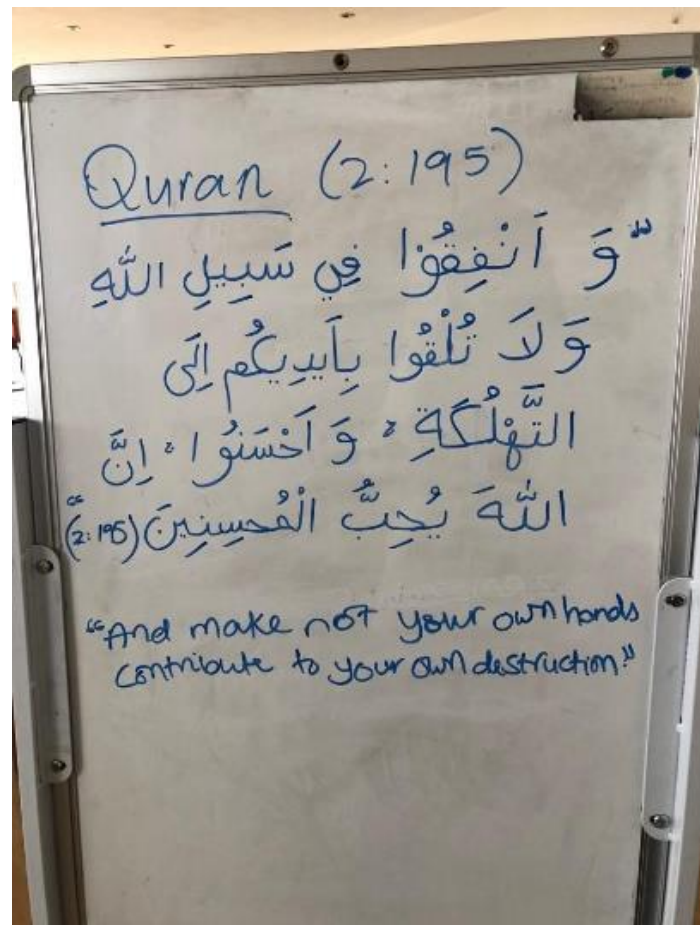 Quran (2:195)
"وَ اَنْفِقُوْا فِي سَبِيلِ اللّٰهِ
وَ لَا تُلْقُوا بِاَيدِيكُم اِلَى
التَّهْلُكَةِ ۛ وَ اَحْسَنُوا ۛ اِنَّ
اللّٰهَ يُحِبُّ الْمُحسِنِينَ (2:195)"
"And make not your own hands
contribute to your own destruction."